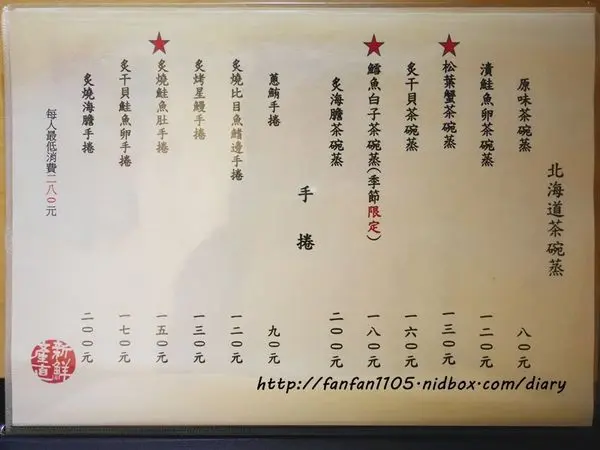 北海道茶碗蒸
原味茶碗蒸 八０元
漬鮭魚卵茶碗蒸 一二０元
★松葉蟹茶碗蒸 一三０元
炙干貝茶碗蒸 一六０元
★鱈魚白子茶碗蒸(季節限定) 一八０元
炙海膽茶碗蒸 二００元
手捲
蔥鮪手捲 九０元
炙燒比目魚鰭邊手捲 一二０元
炙烤星鰻手捲 一三０元
★炙燒鮭魚肚手捲 一五０元
炙干貝鮭魚卵手捲 一七０元
炙燒海膽手捲 二００元
每人最低消費二八０元
新鮮
產直
http://fanfan1105.nidbox.com/diary